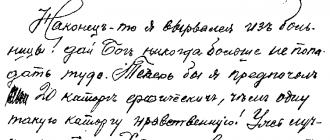 Наконец-то я вырвался изъ боль-
ницы! дай Богъ никогда больше не попа-
дать туда. Теперь бы я предпочелъ
20 каторгъ физическихъ, чѣмъ одну
такую каторгу нравственную! Уже